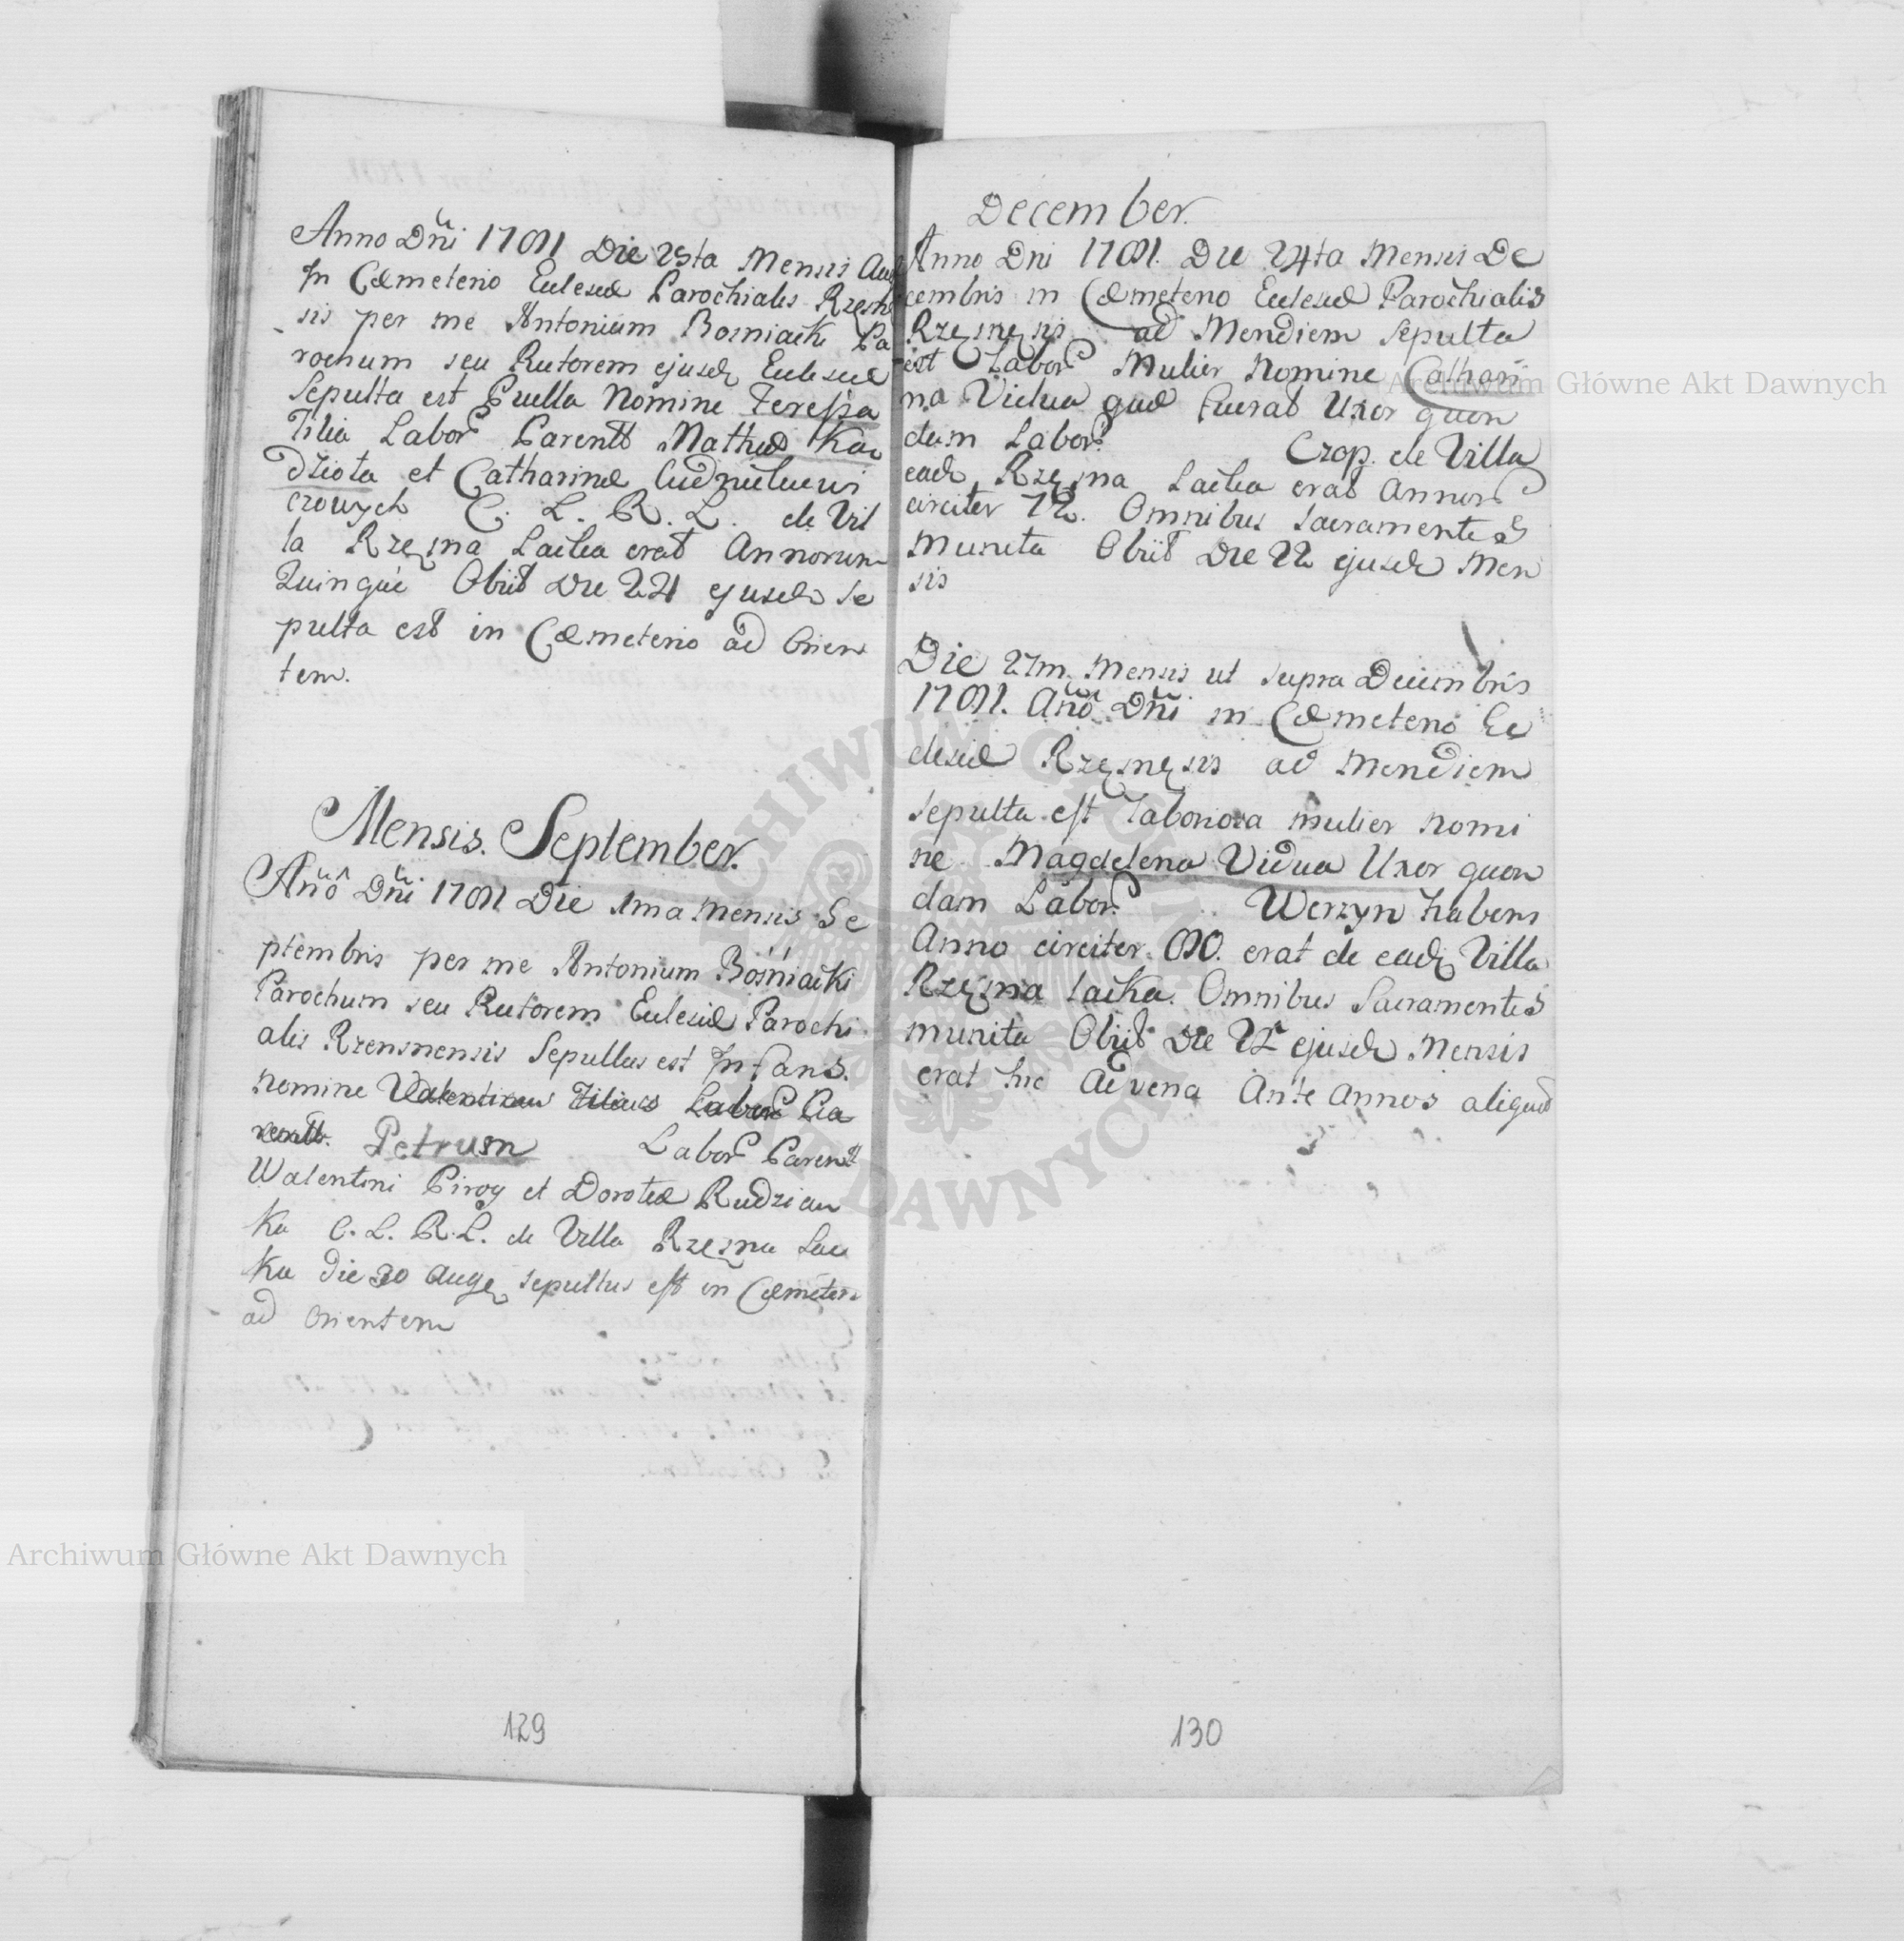 Anno Dñi 1791 Die 25ta Mensis Aug
In Cæmeterio Eclesiæ Parochialis Rzęsnę
sis per me Antonium Bosniacki Pa
rochum seu Rectorem ejusdę Eclesiæ
Sepulta est Puella Nomine Teressa
Filia Labor Parentt Mathæi Kac
dziota et Catharinæ
czowych C. L. R. L. de Vil
la Rzęsna Lacka erat Annorum
Quinque Obiit Die 24 ejusdę Se
pulta est in Cæmeterio ad Orien
tem.
Mensis September.
Anõ Dñi 1791 Die 1ma Mensis Se
ptembris per me Antonium Bośniacki
Parochum seu Rectorem Eclesiæ Parochi
alis Rzensnensis Sepultus est Infans.
Nomine Valentinus Filius Labor Pa
rentt. Petrum Labor Parentt
Walentini Pirog et Doroteæ Rudzian
ka C. L. R. L. de Villa Rzęsna Lac
ka die 30 Auge sepultus est in Cæmeter
ad Orientem
129
December.
Anno Dni 1791. Die 24ta Mensis De
cembris in Cæmeterio Eclesiæ Parochialis
Rzęsnęsis ad Meridiem Sepulta
est Labor Mulier Nomine Cathari
na Vidua quæ fuerat Uxor quon
dam Labor. Czop. de Villa
eadę Rzęsna Lacka erat Annor
circiter 72. Omnibus Sacramentis
Munita Obiit Die 22 ejusdę Men
sis
Die 27m. Mensis ut supra Decembris
1791. Anõ Dñi in Cæmeterio Ec
clesiæ Rzęsnęsis ad Meridiem
sepulta est Laboriosa mulier nomi
ne Magdelena Vidua Uxor quon
dam Labor. Werzyn habens
Anno circiter 90. erat de eadę Villa
Rzęsna Lacka. Omnibus Sacramentis
munita Obiit Die ejusdę Mensis
erat hic Advena Ante Annos aliquod
130
Archiwum Główne Akt Dawnych
Archiwum Główne Akt Dawnych